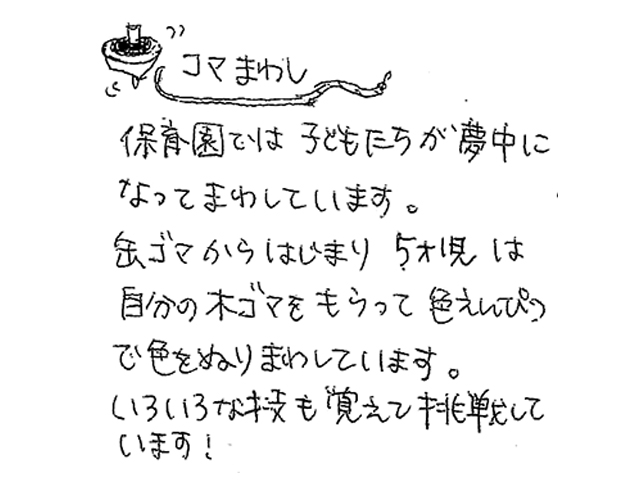 コマまわし
保育園では子どもたちが夢中に
なってまわしています。
缶ゴマからはじまり 5才児は
自分の木ゴマをもらって 色えんぴつ
で色をぬりまわしています。
いろいろな技も覚えて挑戦して
います!